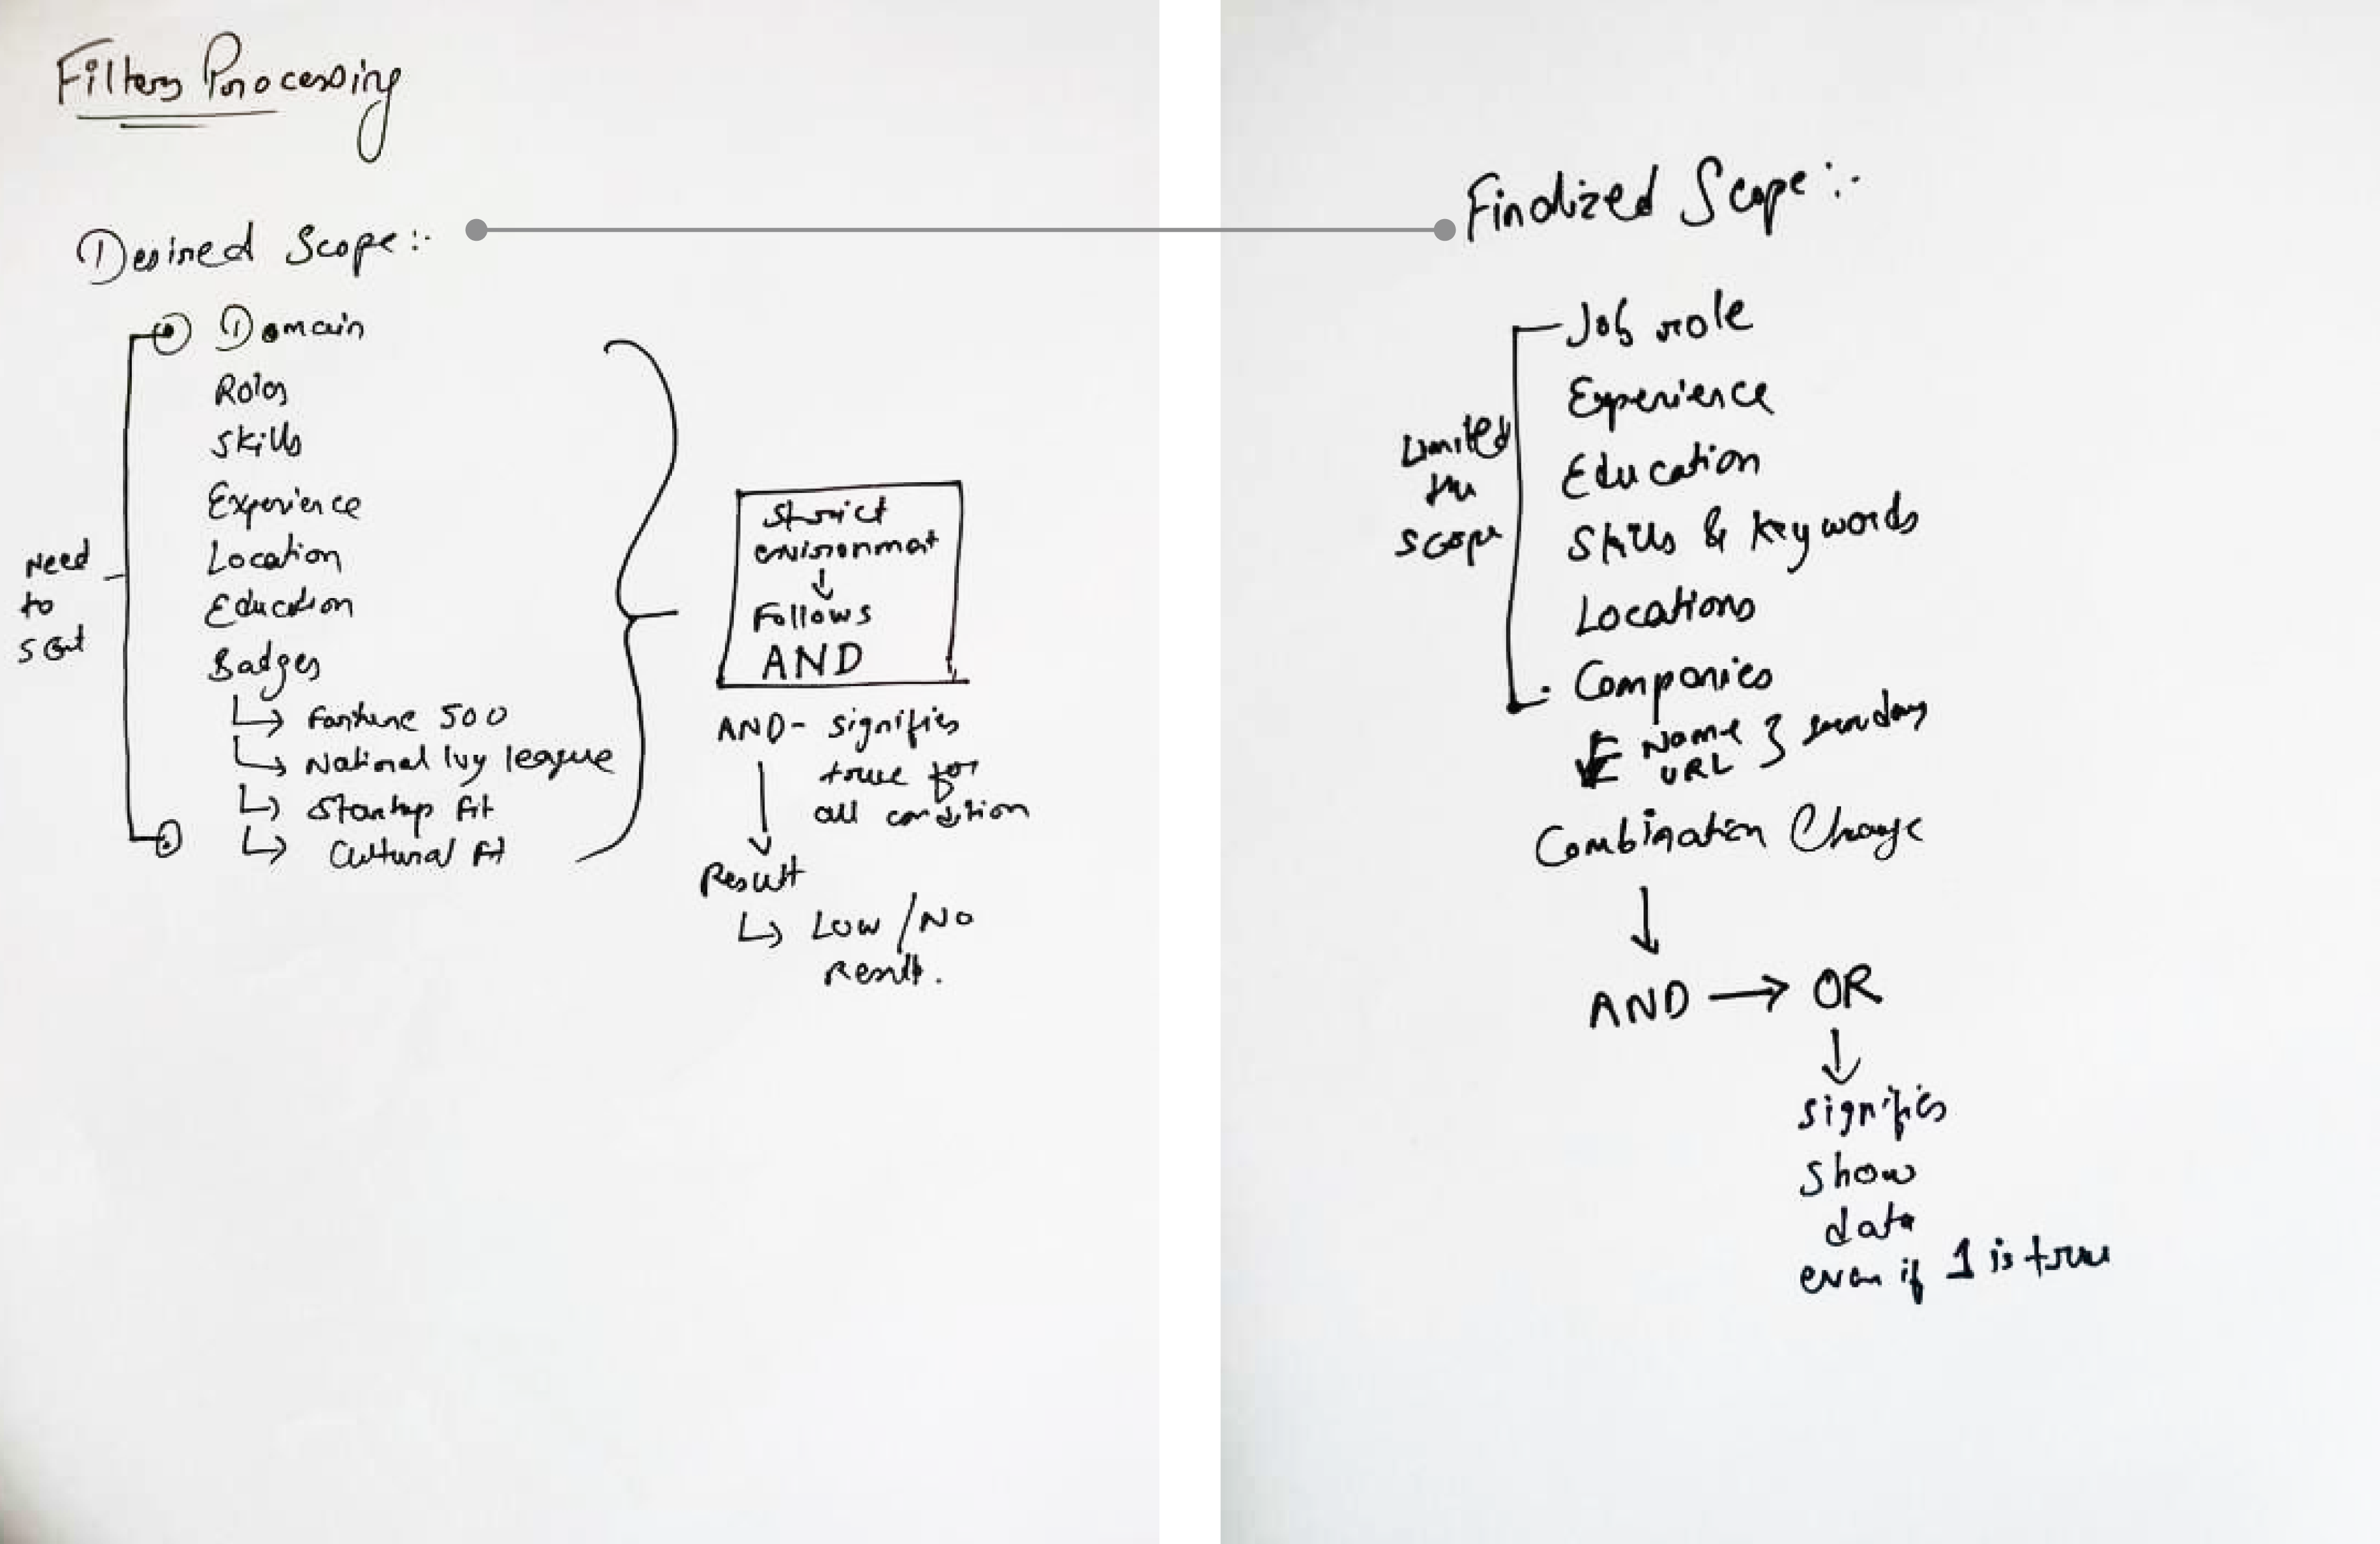 Filters Processing
Desired Scope :-
Domain
Roles
Skills
Experience
Location
Education
Badges
Fortune 500
National Ivy league
Startup fit
Cultural fit
Need
to
strict
environmat
Follows
AND
AND - signifies
true for
all condition
Result
Low / No
Result.
Finalized Scope :-
Job role
Experience
Education
Skills & keywords
Locations
Companies
Name
URL
Limited
the
scope
Combination Change
AND → OR
signifies
show
data
even if 1 is true